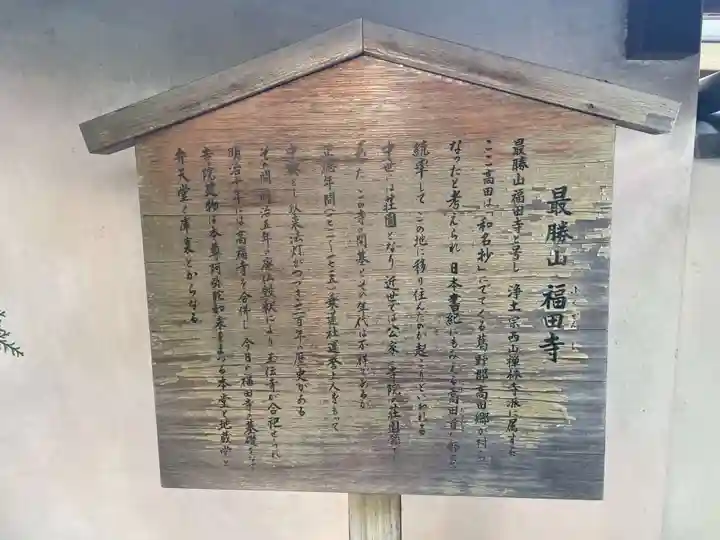 最勝山 福田寺
ふくでんじ
最勝山福田寺と号し 浄土宗西山禅林寺派に属す
ここ高田は「和名抄」にでてくる葛野郡高田郷が村に
なったと考えられ 日本書紀にもみえる高田首が部
統率して この地に移り住んだのが起こりといわれる
中世には荘園となり 近世では公家 寺院の荘園
あった この寺の開基とその年代は不詳であるが
正徳年間(一七一一〜一七一五)乗蓮社運誉上人をもって
中興とし 以来法灯がつづき二百年の歴史がある
その間明治五年の廃仏毀釈により 寺が合祀せられ
明治十年には高福寺を合併し 今日の福田寺の基礎
寺院建物は本尊阿弥陀如来をまつる本堂と地蔵堂と
弁天堂と庫裏とからなる